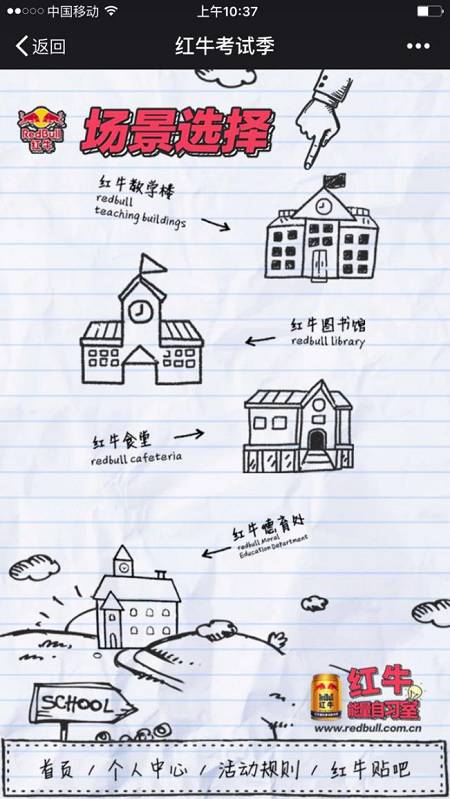 中国移动
上午10:37
返回
红牛考试季
RedBull
红牛
场景选择
红牛教学楼
redbull
teaching buildings
红牛图书馆
redbull library
红牛食堂
redbull cafeteria
红牛德育处
redbull Moral
Education Department
SCHOOL
RedBull
红牛
红牛
能量自习室
www.redbull.com.cn
首页 / 个人中心 / 活动规则 / 红牛贴吧